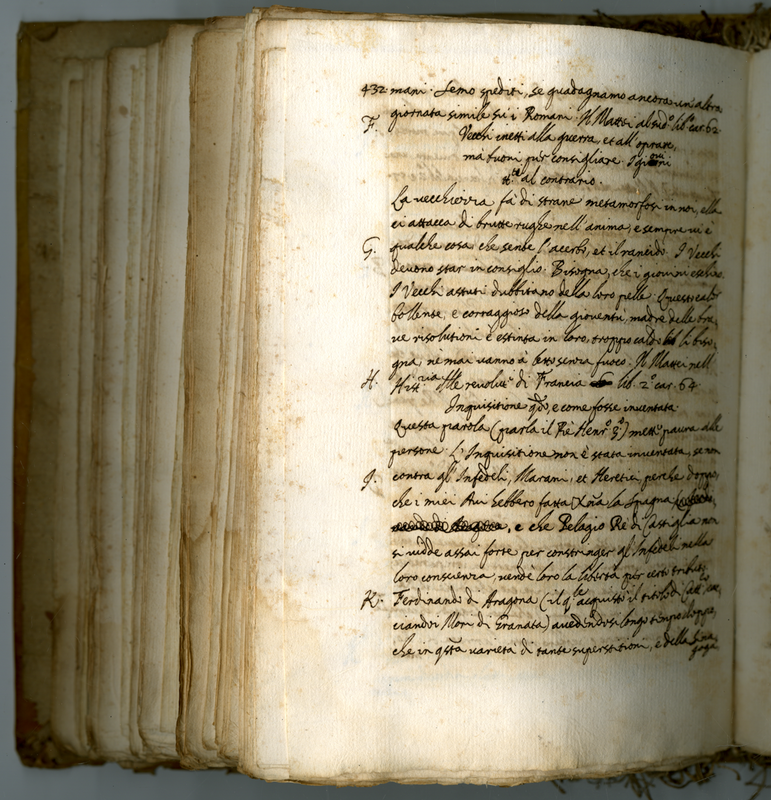 432 mani. Semo spediti, se guadagnamo ancora un'altra
giornata simile su i Romani. Il Mattei al sud.o lib.o car. 62.
F. Vecchi inetti alla guerra, et all'oprare,
mà buoni per consigliare. I giovni
al contrario.
La vecchiezza fà di strane metamorfosi in noi, ella
ci attacca di brutte rughe nell'anima, e sempre vi è
G. qualche cosa che sente l'acerbo, et il rancido. I Vecchi
devono star in consiglio. Bisogna, che i giovini eschino.
I Vecchi astuti dubbitano della loro pelle. Questo caldo
bollente, e corraggioso della gioventù, madre delle bra-
ve risolutioni è estinta in loro, troppo caldo li biso-
gna, nè mai vanno à letto senza fuoco. Il Mattei nell'
H. Hist.ria delle revolut.i di Francia lib. 2.o car. 64.
Inquisitione qdo, e come fosse inventata.
Questa parola (parla il Rè Henr.o) mette paura alle
persone. L'Inquisitione non è stata inventata, se non
J. contra gl'Infedeli, Marani, et Heretici, perche doppo,
che i miei Avi hebbero fatta Xna la Spagna
, e che Pelagio Rè di Castiglia non
si vidde assai forte per constringer gl'Infedeli nella
loro conscienza, vendè loro la libertà per certo tributo
K. Ferdinando di Aragona (il qle acquistò il titolo di Catt.co
ciando i Mori di Granata) avedendosi longo tempo doppo,
che in qsta varietà di tante superstitioni, e della Sina-
goga